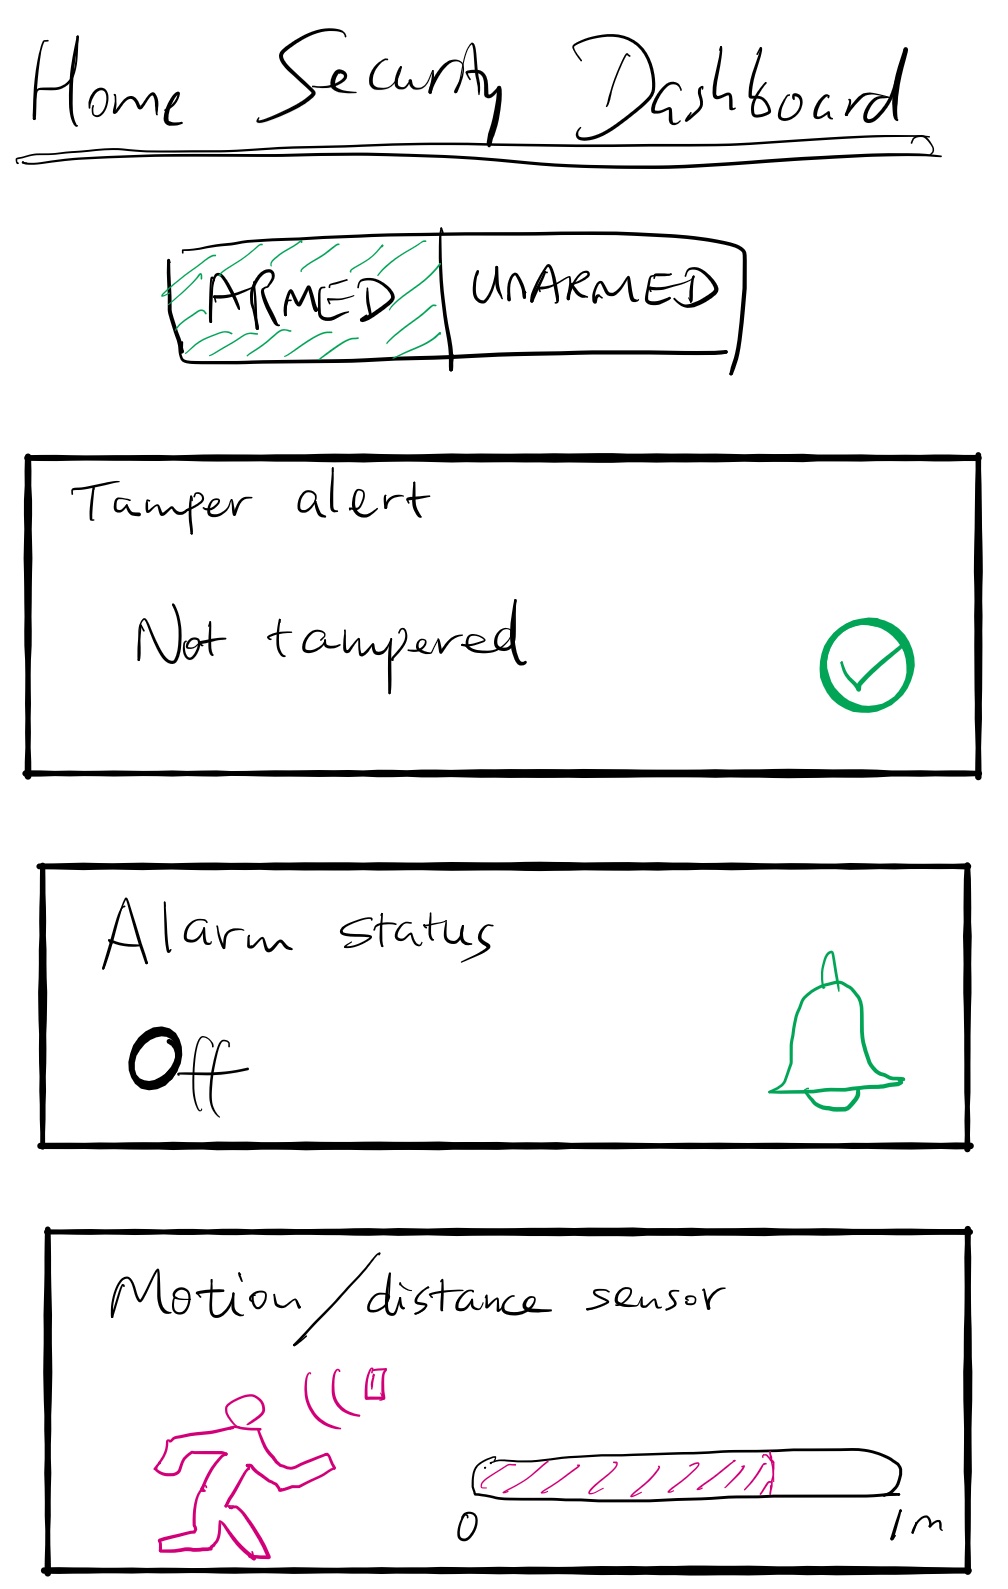 Home Security Dashboard
ARMED UNARMED
Tamper alert
Not tampered
Alarm status
Off
Motion/distance sensor
0 1m